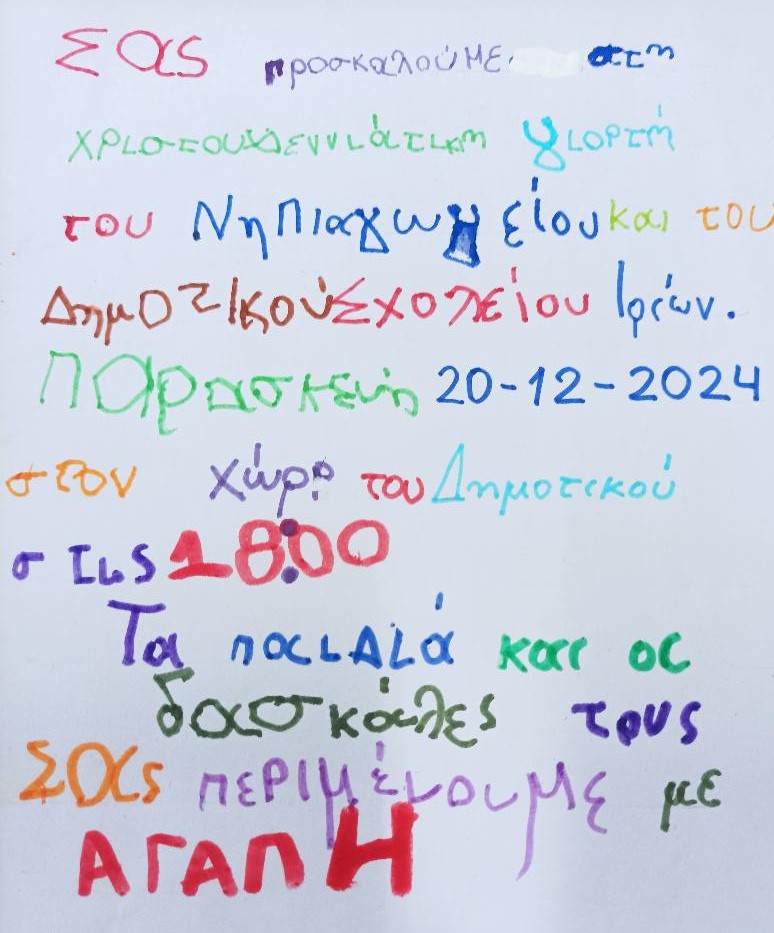 Σας προσκαλούμε στη
χριστουγεννιάτικη γιορτή
του Νηπιαγωγείου και του
Δημοτικού Σχολείου Ιρίων.
Παρασκευή 20-12-2024
στον χώρο του Δημοτικού
στις 18:00
Τα παιδιά και οι
δασκάλες τους
Σας περιμένουμε με
ΑΓΑΠΗ